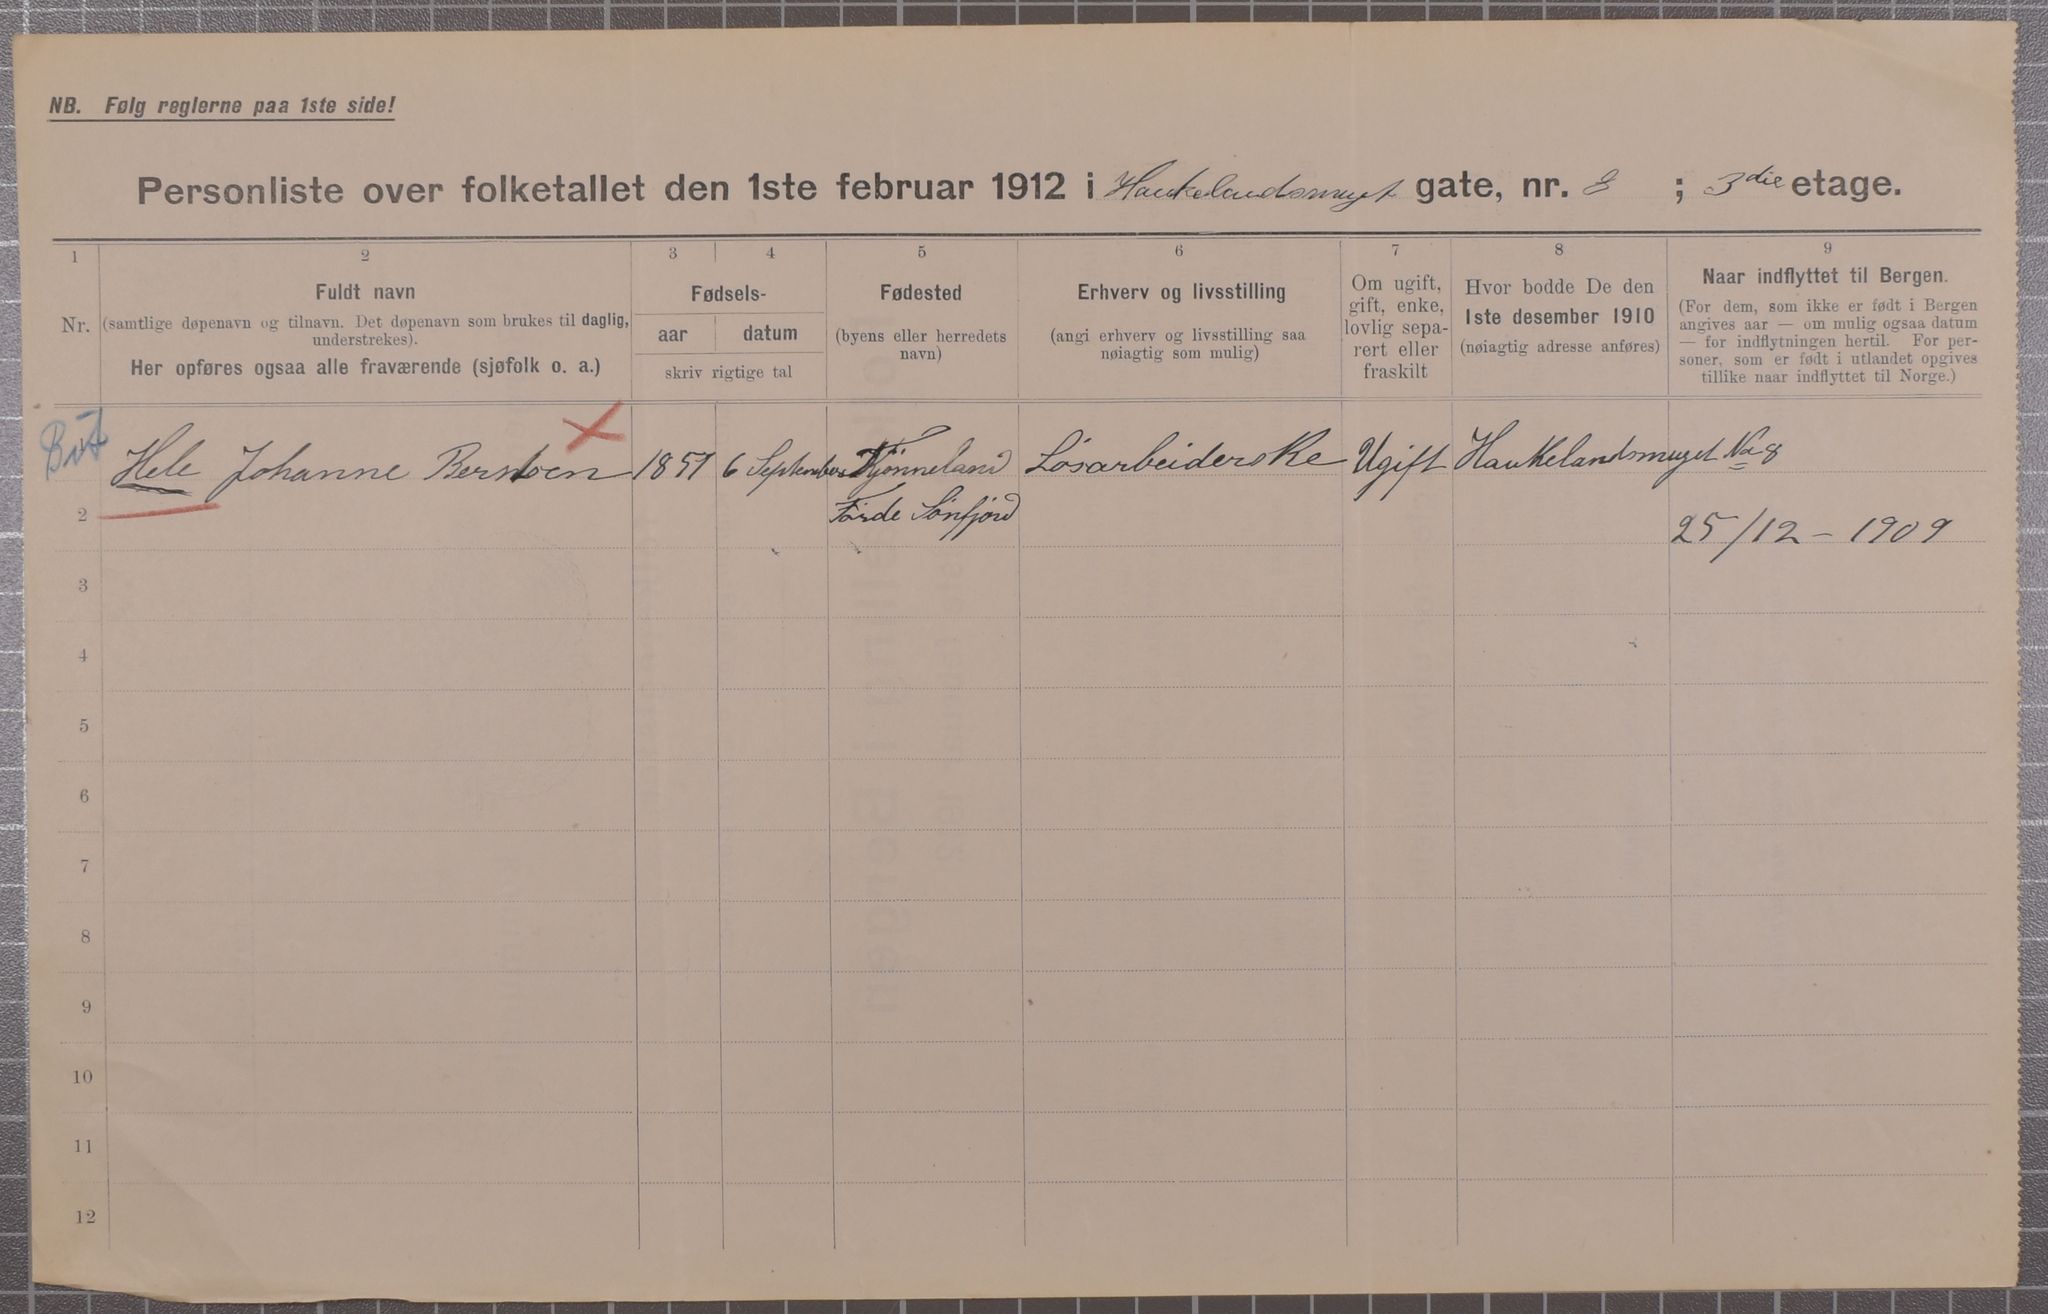 NB. Følg reglerne paa 1ste side!
Personliste over folketallet den 1ste februar 1912 i Haukelandsmuget gate, nr. 8 ; 3die etage.
1 2 3 4 5 6 7 8 9
Nr.
Fuldt navn
(samtlige døpenavn og tilnavn. Det døpenavn som brukes til daglig,
understrekes).
Her opføres ogsaa alle fraværende (sjøfolk o. a.)
Fødsels-
aar datum
skriv rigtige tal
Fødested
(byens eller herredets
navn)
Erhverv og livsstilling
(angi erhverv og livsstilling saa
nøiagtig som mulig)
Om ugift,
gift, enke,
lovlig sepa-
rert eller
fraskilt
Hvor bodde De den
1ste desember 1910
(nøiagtig adresse anføres)
Naar indflyttet til Bergen.
(For dem, som ikke er født i Bergen
angives aar — om mulig ogsaa datum
— for indflytningen hertil. For per-
soner, som er født i utlandet opgives
tillike naar indflyttet til Norge.)
Hele Johanne 1851 6 September Løsarbeiderske Ugift Haukelandsmuget No 8
2 Førde Sønfjord 25/12 - 1909
3
4
5
6
7
8
9
10
11
12